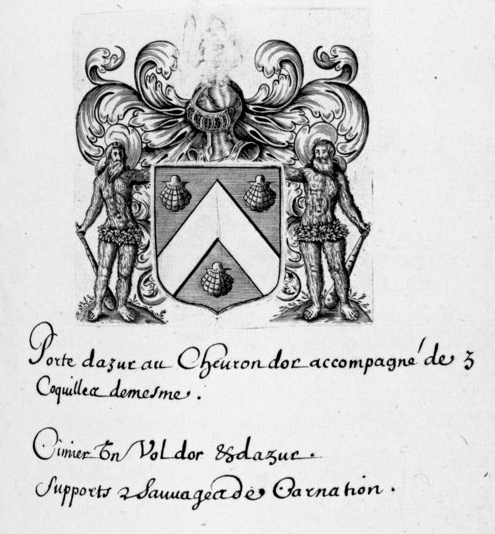 Porte dazur au Cheuron dor accompagné de 3
Coquilles demesme.
Cimier Vn Vol dor & dazur.
Supports 2 Sauuages de Carnation.